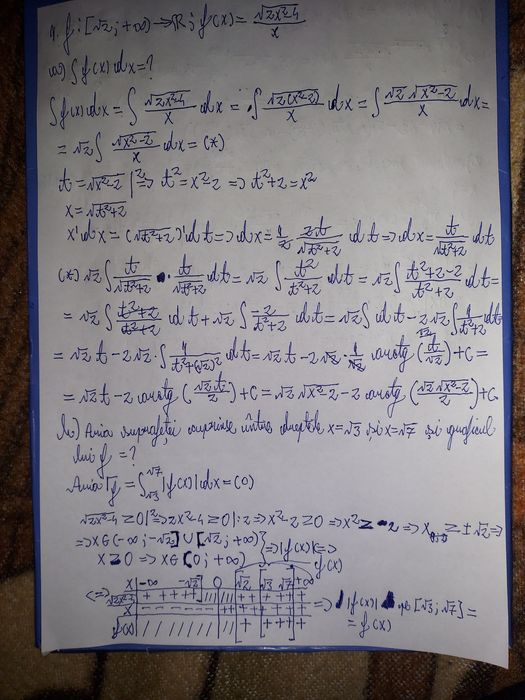 4. f: [√2; +∞) → ℝ; f(x) = √(2x²-4)/x
a) ∫ f(x) dx = ?
∫ f(x) dx = ∫ √(2x²-4)/x dx = ∫ √(2(x²-2))/x dx = ∫ √2 √(x²-2)/x dx =
= √2 ∫ √(x²-2)/x dx = (*)
t = √(x²-2) |² => t² = x²-2 => t²+2 = x²
x = √(t²+2)
x' dx = (√(t²+2))' dt => dx = 1/2 · 2t/√(t²+2) dt => dx = t/√(t²+2) dt
(*) √2 ∫ t/√(t²+2) · t/√(t²+2) dt = √2 ∫ t²/(t²+2) dt = √2 ∫ (t²+2-2)/(t²+2) dt =
= √2 ∫ (t²+2)/(t²+2) dt + √2 ∫ -2/(t²+2) dt = √2 ∫ dt - 2√2 ∫ 1/(t²+2) dt
= √2 t - 2√2 · ∫ 1/(t²+(√2)²) dt = √2 t - 2√2 · 1/√2 arctg (t/√2) + C =
= √2 t - 2 arctg (√2 t/2) + C = √2 √(x²-2) - 2 arctg (√2 √(x²-2)/2) + C
b) Aria suprafeței cuprinse între dreptele x = √3 și x = √7 și graficul
lui f = ?
Aria Γf = ∫_√3^√7 |f(x)| dx = (O)
√(2x²-4) ≥ 0 |² => 2x²-4 ≥ 0 |:2 => x²-2 ≥ 0 => x² ≥ 2 => x ≥ ±√2 =>
=> x ∈ (-∞; -√2] ∪ [√2; +∞) } => |f(x)| <=>
x ≥ 0 => x ∈ [0; +∞) f(x)
x | -∞ -√2 0 √2 √3 √7 +∞
<=> √(2x²-4) | + + + + /// /// + + + + +
x | - - - - - - - + + + + + + +
f(x) | / / / / / / / / / + + + + +
=> |f(x)| pe [√3; √7] =
= f(x)